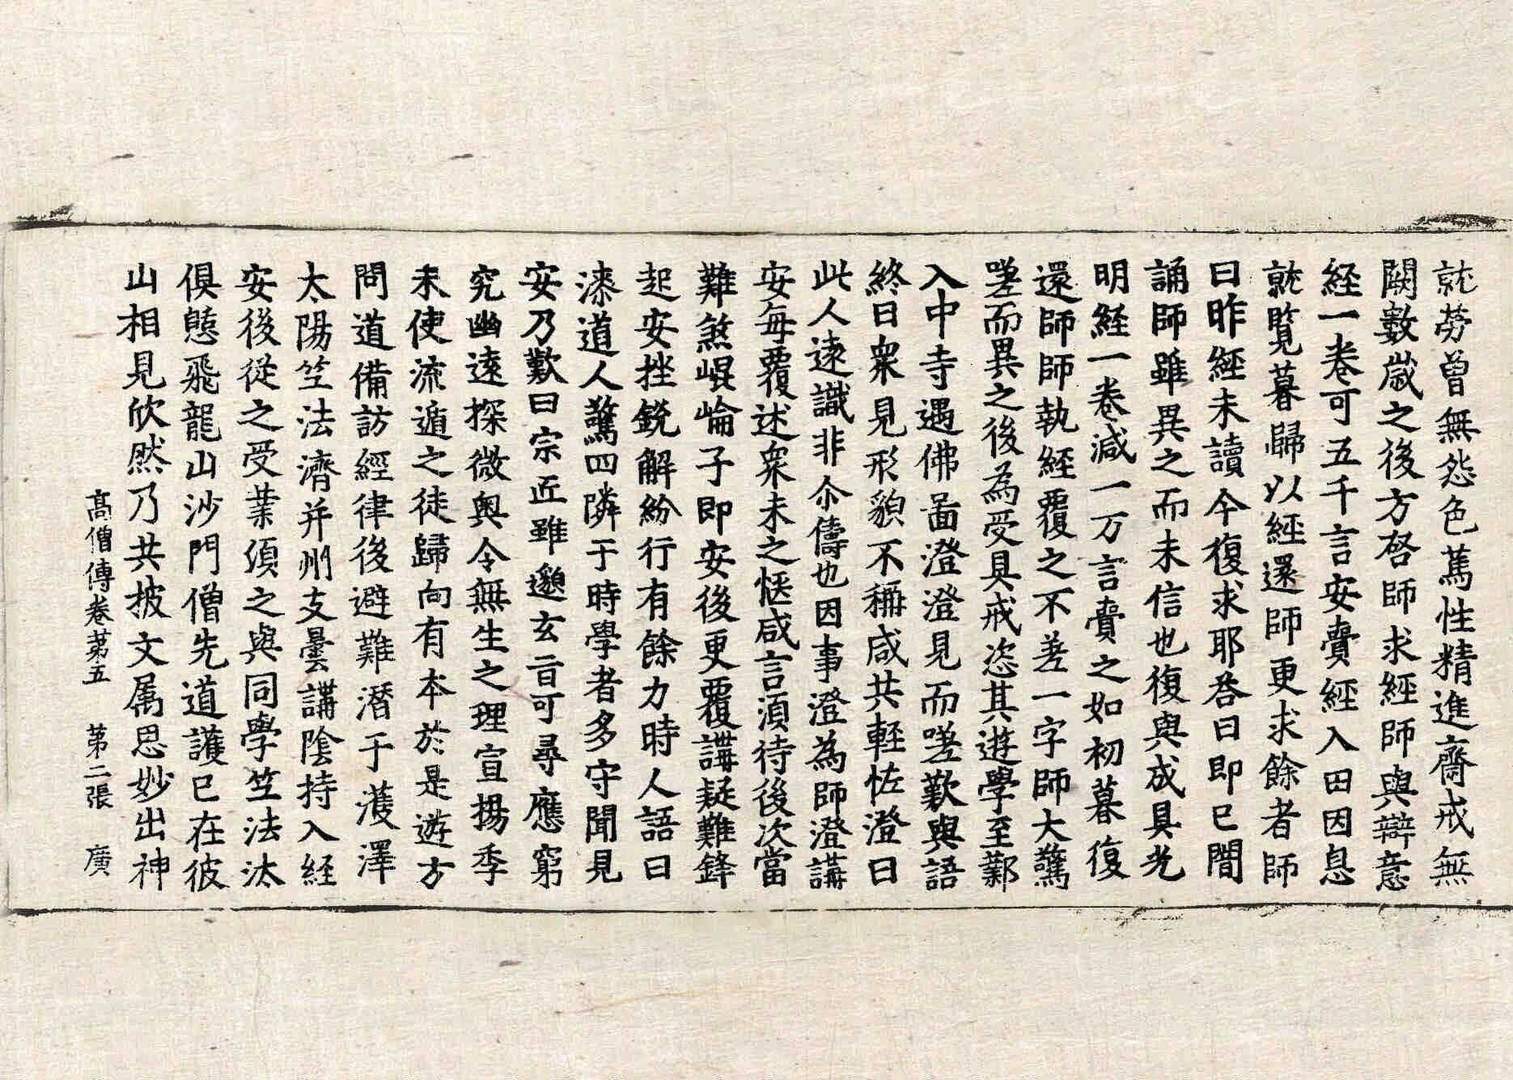 就勞曾無怨色萬性精進齋戒無
闕數歲之後方啓師求經師與辯意
經一卷可五千言安賷經入田因息
就覧暮歸以經還師更求餘者師
曰昨經未讀今復求耶荅曰即已闇
誦師雖異之而未信也復與成具光
明經一卷減一万言賷之如初暮復
還師師執經覆之不差一字師大驚
嗟而異之後為受具戒恣其遊學至鄴
入中寺遇佛啚澄澄見而嗟歎與語
終日衆見形貌不稱咸共輕恠澄曰
此人遠識非尒儔也因事澄為師澄講
安每覆述衆未之愜咸言湏待後次當
難煞崐崘子即安後更覆講疑難鋒
起安挫銳解紛行有餘力時人語曰
漆道人驚四隣于時學者多守聞見
安乃歎曰宗匠雖邈玄旨可尋應窮
究幽遠探微奥令無生之理宣揚季
末使流遁之徒歸向有本於是遊方
問道備訪經律後避難潛于濩澤
太陽竺法濟并州支曇講陰持入経
安後從之受業湏之與同學竺法汰
俱憇飛龍山沙門僧先道護已在彼
山相見欣然乃共披文属思妙出神
高僧傳卷第五　第二張　廣